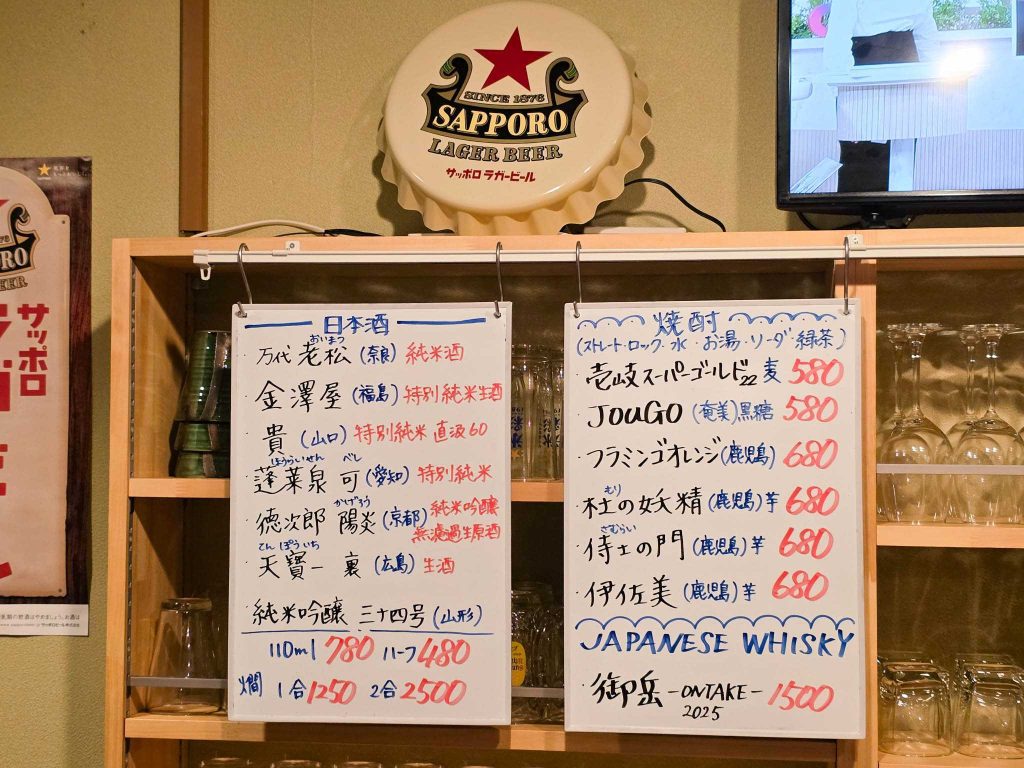 SINCE 1876
SAPPORO
LAGER BEER
サッポロ ラガービール
サッポロ
日本酒
おいまつ
・万代 老松(奈良) 純米酒
・金澤屋(福島) 特別純米生酒
・貴(山口)特別純米 直汲60
ほうらいせん べし
・蓬莱泉 可(愛知)特別純米
かげろう
・徳次郎 陽炎(京都)純米吟醸
無濾過生原酒
てんぽういち
・天寶一 裏(広島)生酒
・純米吟醸 三十四号(山形)
110ml 780 ハーフ480
燗 1合1250 2合2500
焼酎
(ストレート・ロック・水・お湯・ソーダ・緑茶)
・壱岐スーパーゴールド22 麦 580
・JOUGO(奄美)黒糖 580
・フラミンゴオレンジ(鹿児島) 680
もり
・杜の妖精(鹿児島)芋 680
さむらい
・侍士の門(鹿児島)芋 680
・伊佐美(鹿児島)芋 680
JAPANESE WHISKY
・御岳 -ONTAKE- 1500
2025